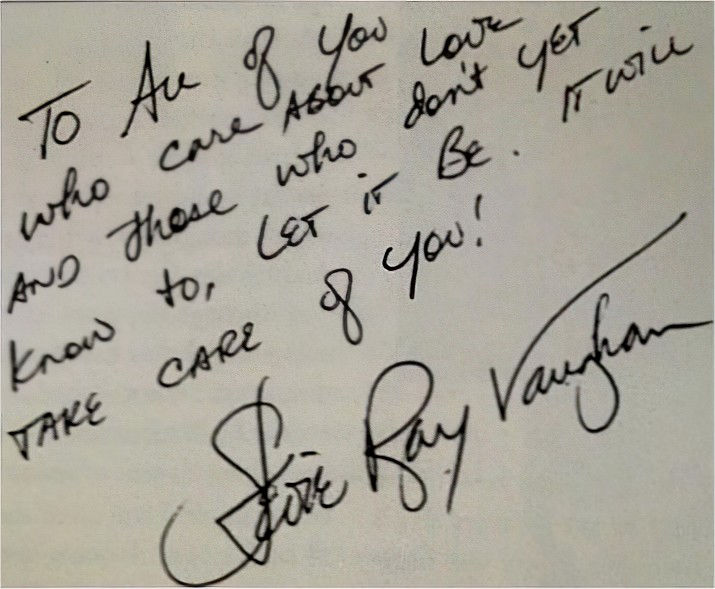 To All of you
who care about Love
AND those who don't yet
know to, LET iT BE. IT will
TAKE CARE of you!
Stevie Ray Vaughan